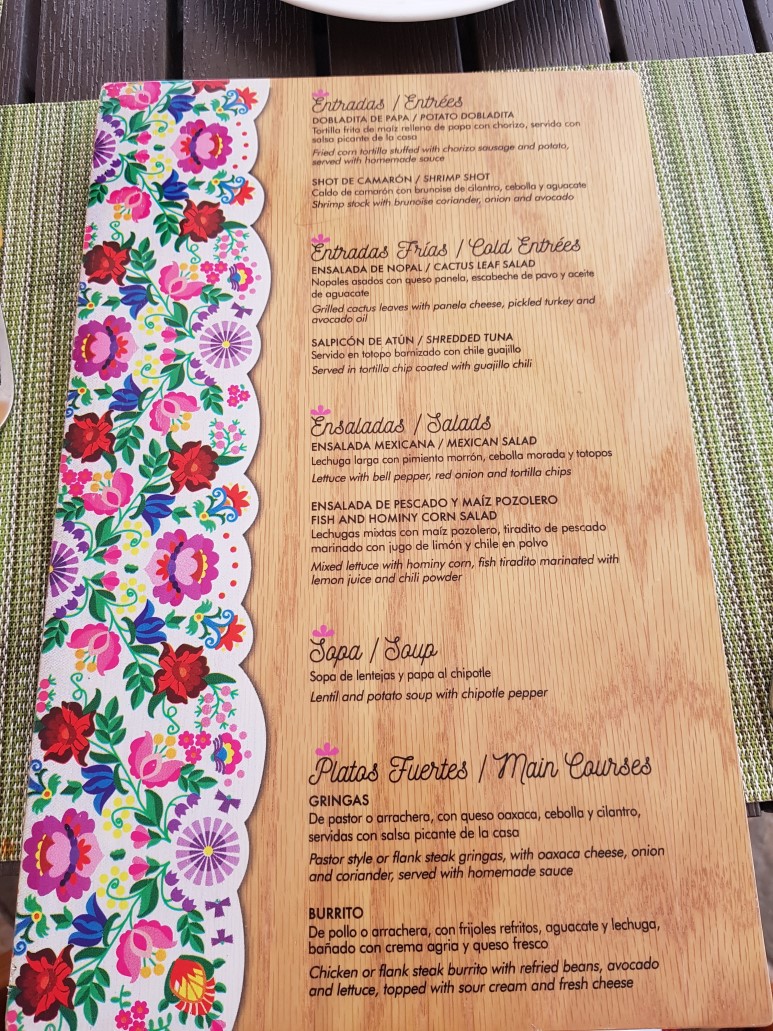 Entradas / Entrées
DOBLADITA DE PAPA / POTATO DOBLADITA
Tortilla frita de maíz rellena de papa con chorizo, servida con
salsa picante de la casa
Fried corn tortilla stuffed with chorizo sausage and potato,
served with homemade sauce
SHOT DE CAMARÓN / SHRIMP SHOT
Caldo de camarón con brunoise de cilantro, cebolla y aguacate
Shrimp stock with brunoise coriander, onion and avocado
Entradas Frías / Cold Entrées
ENSALADA DE NOPAL / CACTUS LEAF SALAD
Nopales asados con queso panela, escabeche de pavo y aceite
de aguacate
Grilled cactus leaves with panela cheese, pickled turkey and
avocado oil
SALPICÓN DE ATÚN / SHREDDED TUNA
Servido en totopo barnizado con chile guajillo
Served in tortilla chip coated with guajillo chili
Ensaladas / Salads
ENSALADA MEXICANA / MEXICAN SALAD
Lechuga larga con pimiento morrón, cebolla morada y totopos
Lettuce with bell pepper, red onion and tortilla chips
ENSALADA DE PESCADO Y MAÍZ POZOLERO
FISH AND HOMINY CORN SALAD
Lechugas mixtas con maíz pozolero, tiradito de pescado
marinado con jugo de limón y chile en polvo
Mixed lettuce with hominy corn, fish tiradito marinated with
lemon juice and chili powder
Sopa / Soup
Sopa de lentejas y papa al chipotle
Lentil and potato soup with chipotle pepper
Platos Fuertes / Main Courses
GRINGAS
De pastor o arrachera, con queso oaxaca, cebolla y cilantro,
servidas con salsa picante de la casa
Pastor style or flank steak gringas, with oaxaca cheese, onion
and coriander, served with homemade sauce
BURRITO
De pollo o arrachera, con frijoles refritos, aguacate y lechuga,
bañado con crema agria y queso fresco
Chicken or flank steak burrito with refried beans, avocado
and lettuce, topped with sour cream and fresh cheese